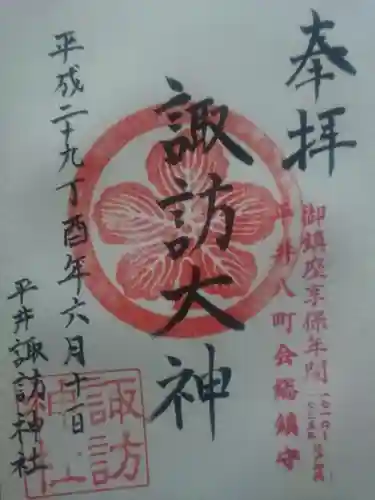 奉拝
御鎮座享保年間
平井八町会総鎮守
諏訪大神
平成二十九丁酉年六月十一日
平井諏訪神社
諏訪
神社